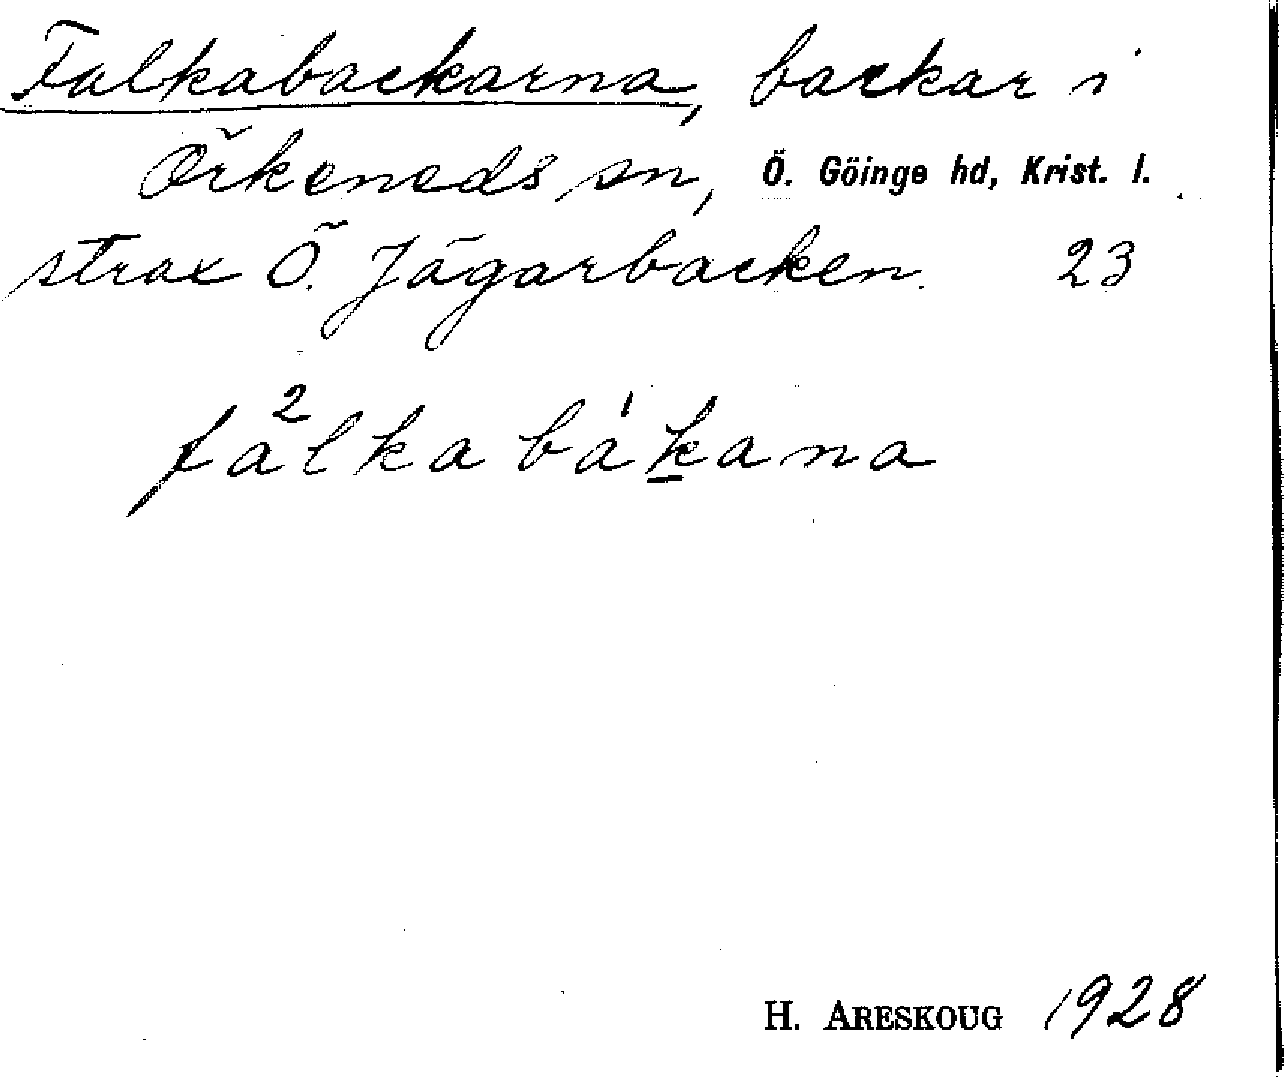 Falkabackarna, backar i
Örkeneds sn, Ö. Göinge hd, Krist. l.
strax Ö. Jägarbacken. 23
fa²lka ba¹k̲ana
H. ARESKOUG 1928